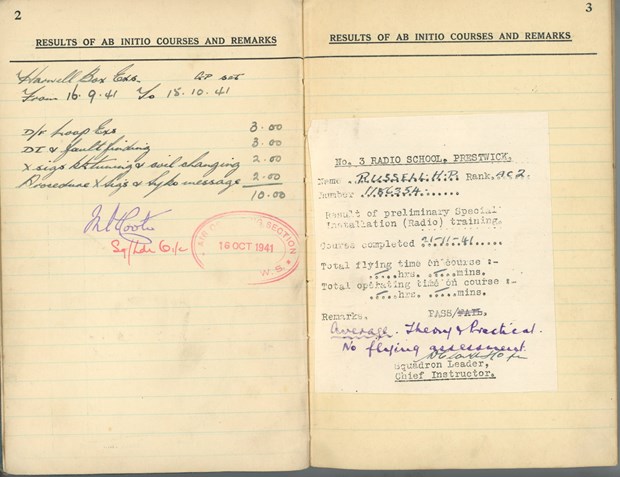 2
RESULTS OF AB INITIO COURSES AND REMARKS
Harwell Box Exs. GP set
From 16.9.41 To 18.10.41
D/F Loop Exs 3.00
DI & faultfinding 3.00
X sigs tuning & coil changing 2.00
Procedure X Sigs & syko message 2.00
10.00
Sq/Ldr O i/c
AIR OPERATING SECTION
16 OCT 1941
W.S.
3
RESULTS OF AB INITIO COURSES AND REMARKS
No. 3 RADIO SCHOOL, PRESTWICK.
Name RUSSELL H.P. Rank. AC2.
Number
Result of preliminary Special
Installation (Radio) training.
Course completed 21-11-41
Total flying time on course :-
hrs. mins.
Total operating time on course :-
hrs. mins.
Remarks. PASS/FAIL.
Average. Theory & Practical.
No flying assessment
Squadron Leader,
Chief Instructor.